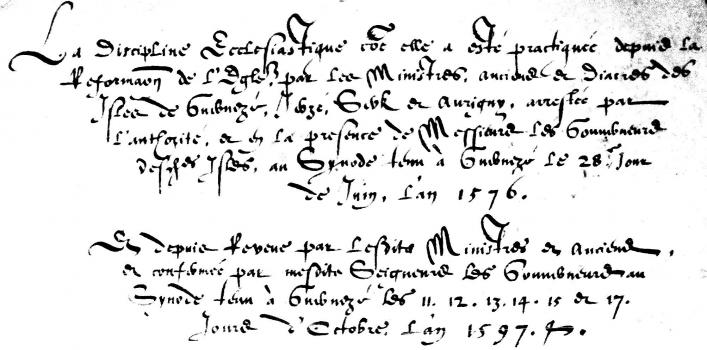 La Discipline Ecclesiastique cõe elle a esté practiquée depuis la
Reformaõn de l'Eglĩse, par les Ministres, anciens et Diacres des
Isles de Guernezé, Jerzé, Serk et Aurigny, arrestée par
l'authorité, et en la presence de Messieurs les Gouverneurs
desdes Isles, au Synode tenu à Guernezé le 28e Jour
de Juin, l'an 1576.
Et depuis Reveue par lesdits Ministres et Anciens,
et confermée par mesdits Seigneurs les Gouverneurs au
Synode tenu à Guernezé les 11. 12. 13. 14. 15 et 17.
Jours d'Octobre, l'an 1597.